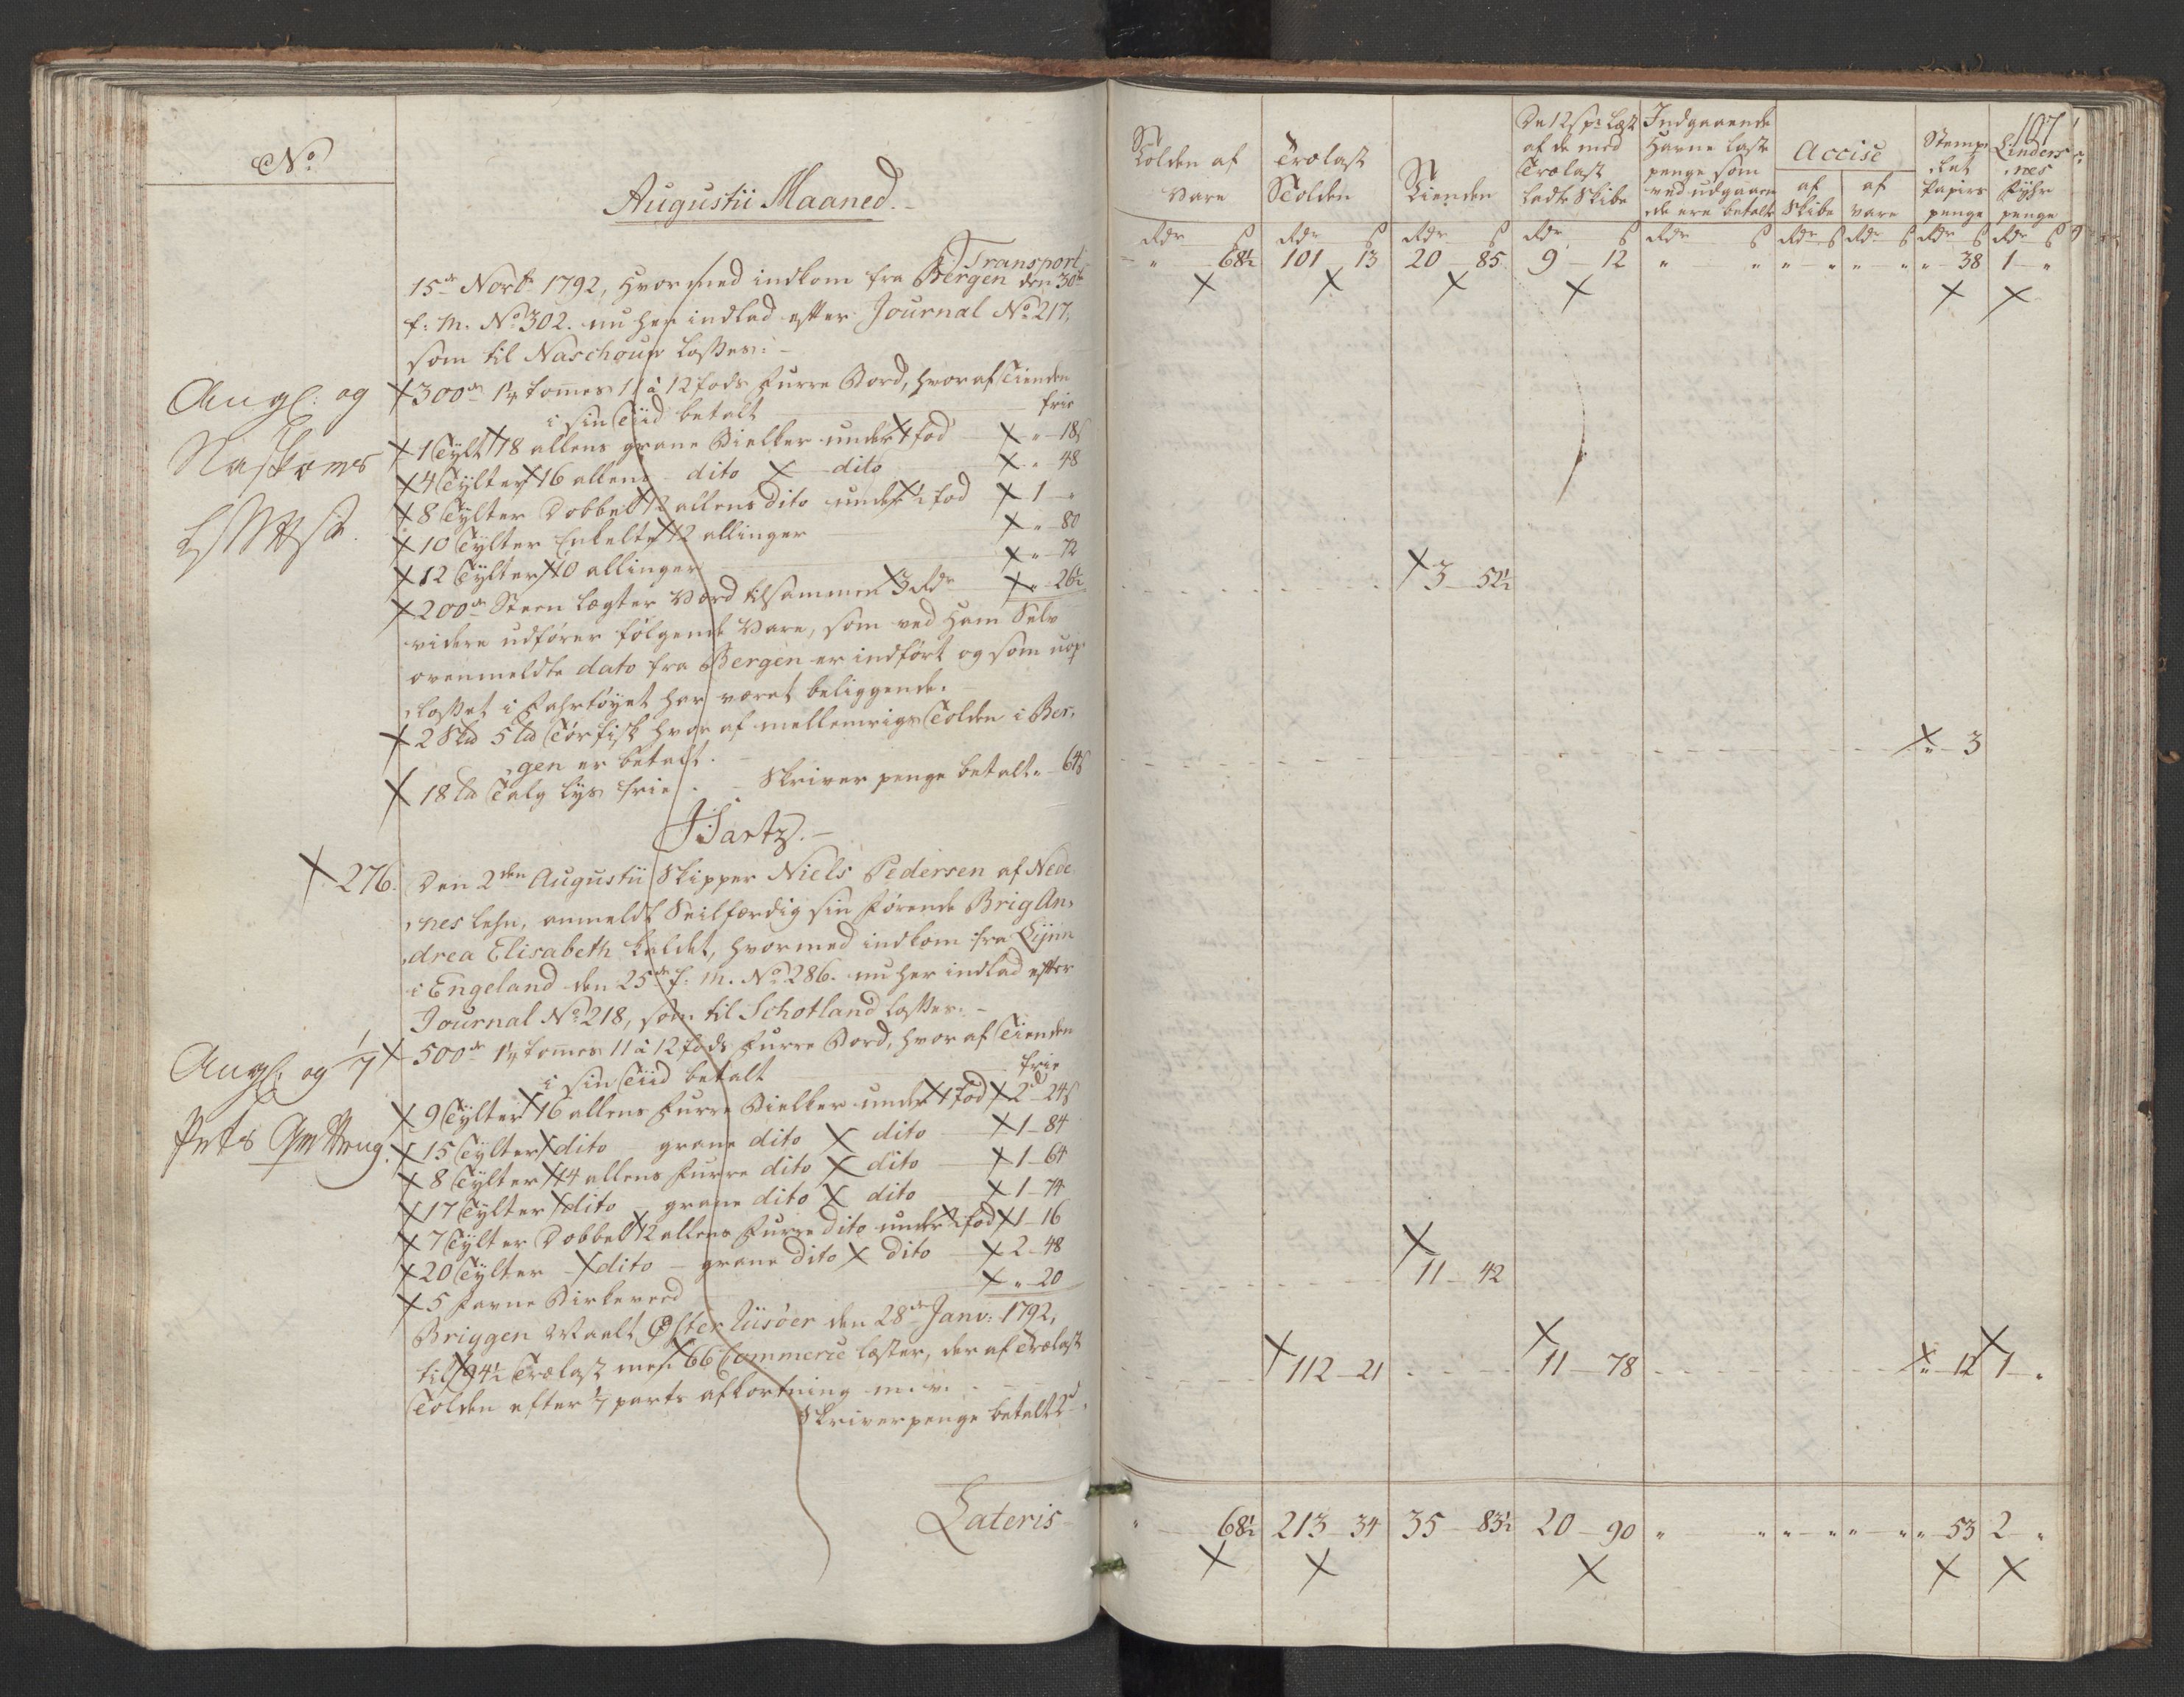 No
Augustii Maaned.
Transport
15de Novbr 1792, hvormed indkom fra Bergen den 30te
f: M. No 302. nu her indlad efter Journal No 217,
som til Naschouw losses:
Augl: og
300de 1¼ tommes 11 à 12 fods furre Bord, hvoraf Tienden
i sin Tiid betalt frie
1 Tylt 18 allens grane Bielker under 1 fod " 18 s
4 Tylter 16 allens dito dito " 48
8 Tylter Dobbelt 12 allens dito under ½ fod 1 "
10 Tylter Enkelte 12 allinger " 80
12 Tylter 10 allinger " 72
200de Steen lægter Værd tilsammen 3 Rdr " 26½
3 52½
videre udfører følgende Vare, som ved ham Selv
ovenmeldte dato fra Bergen er indført og som uop
losset i Fahrtøyet har været beliggende.
2 Sk℔ 5 L℔ Tørfisk hvor af mellemrigs Tolden i Ber,
gen er betalt. " 3
18 L℔ Talg lys frie. Skriver penge betalt " 64 s
J: Sartz.
276. Den 2den Augustii Skipper Niels Pedersen af Nede
nes lehn, anmeldt Seilfærdig sin førende Brig An,
drea Elisabeth kaldet, hvormed indkom fra Lynn
i Engeland den 25de f: M. No 286. nu her indlad efter
Journal No 218, som til Schotland losses.
Augl: og 1/7
500de 1¼ tommes 11 à 12 fods furre Bord, hvor af Tienden
i sin Tiid betalt frie
9 Tylter 16 allens furre Bielker under 1 fod 2d 24 s
15 Tylter dito grane dito dito 1 84
8 Tylter 14 allens furre dito dito 1 64
17 Tylter dito grane dito dito 1 74
7 Tylter Dobbelt 12 allens furre dito under ½ fod 1 16
20 Tylter dito grane dito dito 2 48
5 favne Birkeveed " 20
11 42
Briggen Maalt Øster Riisøer den 28de Janv: 1792,
til 94½ Trælast mens 66 Commerce læster, der af Trælast
Tolden efter 1/7 parts afkortning m. v. 112 21 11 78 " 12 1 "
Skriverpenge betalt 2d
Lateris
107
Tolden af Vare
Trælast Tolden
Tienden
De 12 s pr læst af de med Trælast ladte Skibe
Indgaaende Havne laste penge som ved udgaaende ere betalte
Accise
af Skibe
af Vare
Stemplet Papirs penge
Lindersnes Fyhr penge
Rdr s Rdr s Rdr s Rdr s Rdr s Rdr s Rdr s Rdr s Rdr s
" 68½ 101 13 20 85 9 12 " " " " " " " 38 1 "
" 68½ 213 34 35 83½ 20 90 " " " " " " " 53 2 "